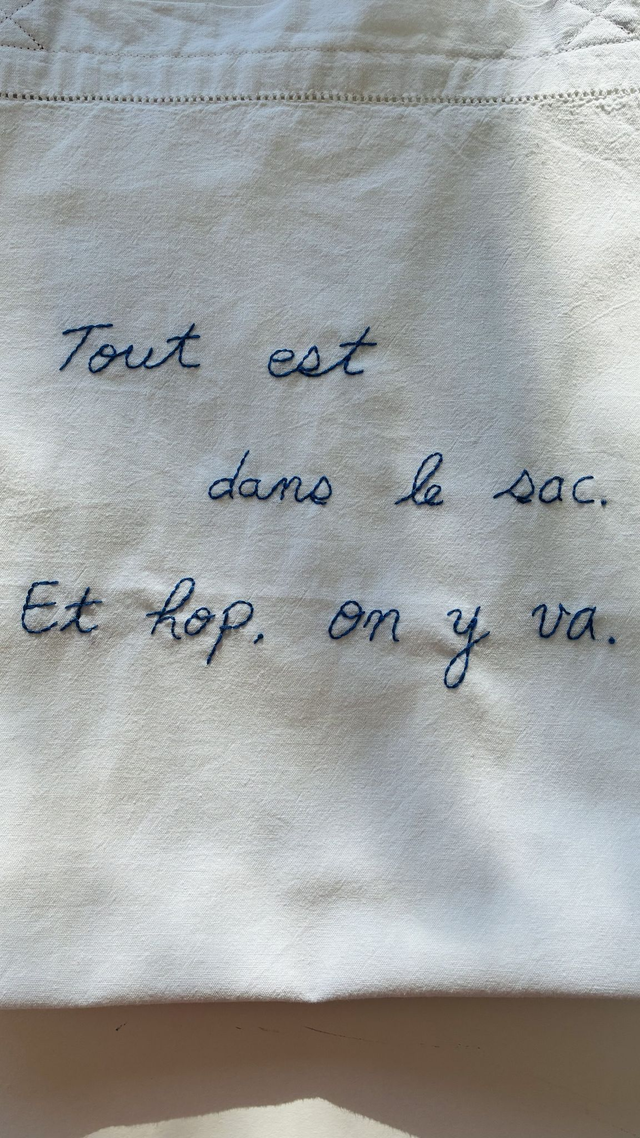 Tout est
dans le sac.
Et hop, on y va.